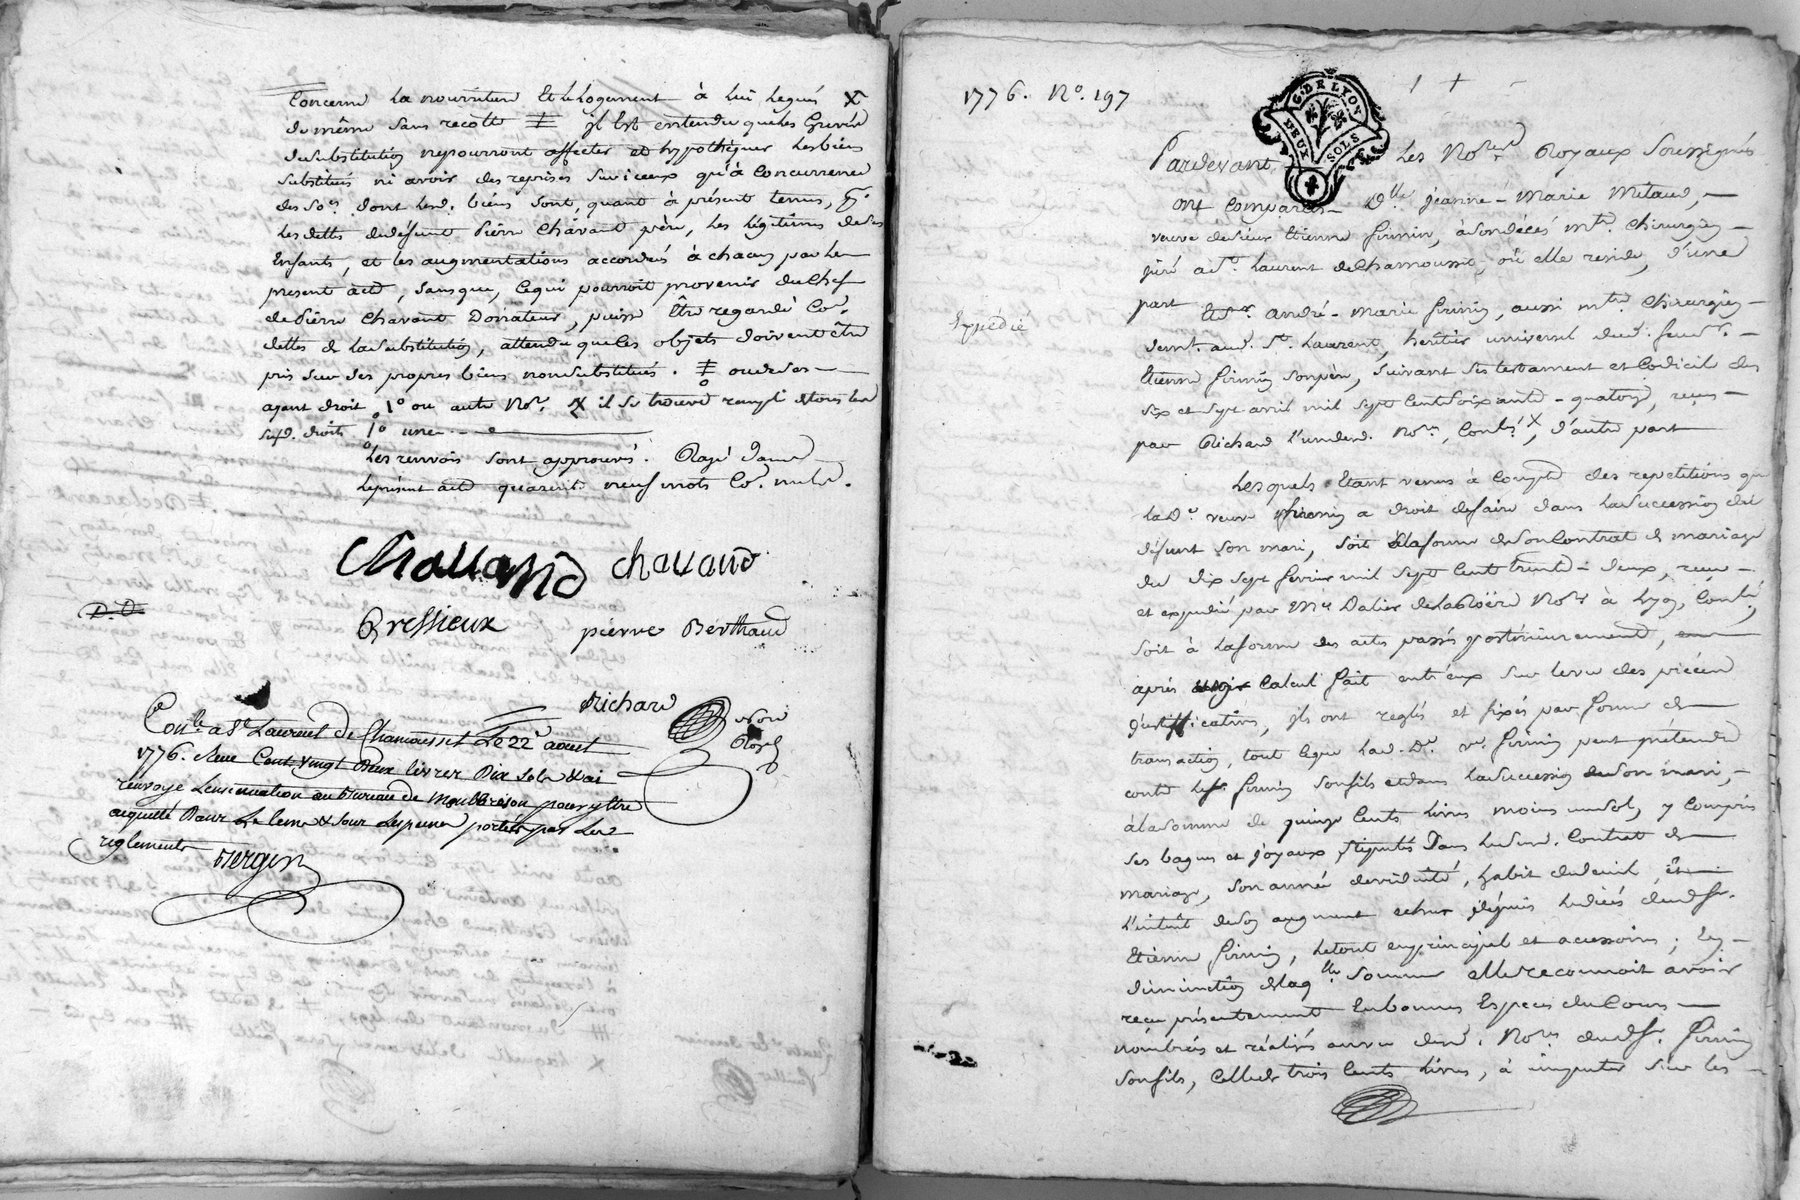 Concerne la nourriture et le logement à lui legués X
de même sans recolte ‡ il est entendu que les Grevés
de substitution ne pourront affecter et hypothéquer les biens
substitués ni avoir des reprises sur iceux qu'à concurrence
des so.es dont lesd. biens sont, quant à présent tenus, p.r
les dettes de deffunt Pierre Chavant père, les légitimes de ses
enfants, et les augmentations accordés à chacun par le
present acte, sans que, ce qui pourroit provenir du chef
de Pierre Chavant Donateur, puisse être regardé co.e
dettes de la substitution, attendu que les objets doivent être
pris sur ses propres biens non substitués. ‡ ou de ses
ayant droit 1° ou autre No.re X il se trouve rempli de tous les
susd. droits 1° une
Les renvois sont approuvés. Rayé dans
le présent acte quarente neuf mots co.e nuls.
Chavand chavand
D.D
Bressieux pierre Berthaud
Richard
No.re Royal
Con.lé a S.t Laurent de Chamousset Le 22.e aoust
1776. Reçu Cent vingt Deux livres Dix sols & ai
renvoyé Lensinuation au Bureau de Montbrison pour y être
acquitté Dans Le tems & sous les peines portées par Les
reglements Berger
1776. N°. 197
G. DE LYON
DEUX SOLS
Pardevant Les No.res Royaux Soussignés
ont comparus D.lle jeanne-Marie Metaud,
veuve de sieur Etienne firmin, à son décés m.tre chirurgien
juré à S.t Laurent de Chamousset, où elle reside, d'une
part Et s.r andré-marie firmin, aussi m.tre chirurgien
Expédié
demt. aud. S.t Laurent, heritier universel dud. feu s.r
Etienne firmin son père, suivant ses testament et codicil des
six et sept avril mil sept cent soixante-quatorze, reçus
par Richard l'un desd. No.res, Contr.lé X, d'autre part
Lesquels étant venus à compte des repetitions que
la D.e veuve firmin a droit de faire dans la succession dud.
défunt son mari, soit à la forme de son contrat de mariage
du dix sept fevrier mil sept cent trente-deux, reçu
et expédié par M.e Dalier de No.re à Lyon, Contr.lé,
soit à la forme des actes passés postérieurement,
après calcul fait entr'eux sur le vu des pièces
justificatives, ils ont reglés et fixés par forme de
transaction, tout ce que lad. D.e v.e firmin peut prétendre
contre led. s.r firmin son fils et dans la succession de son mari,
à la somme de quinze cents livres moins un sol, y compris
ses bagues et joyaux stipulés dans le susd. contrat de
mariage, son année de viduité, habit de deuil, et
l'intérêt de son augment echus depuis le décés dud. s.r
Etienne firmin, le tout en principal et accessoires; en
diminution de laq.lle somme elle reconnoit avoir
reçu présentement en bonnes especes du cours
nombrées et réalisés au vu desd. No.res dud. s.r firmin
son fils, celle de trois cents livres, à imputer sur les